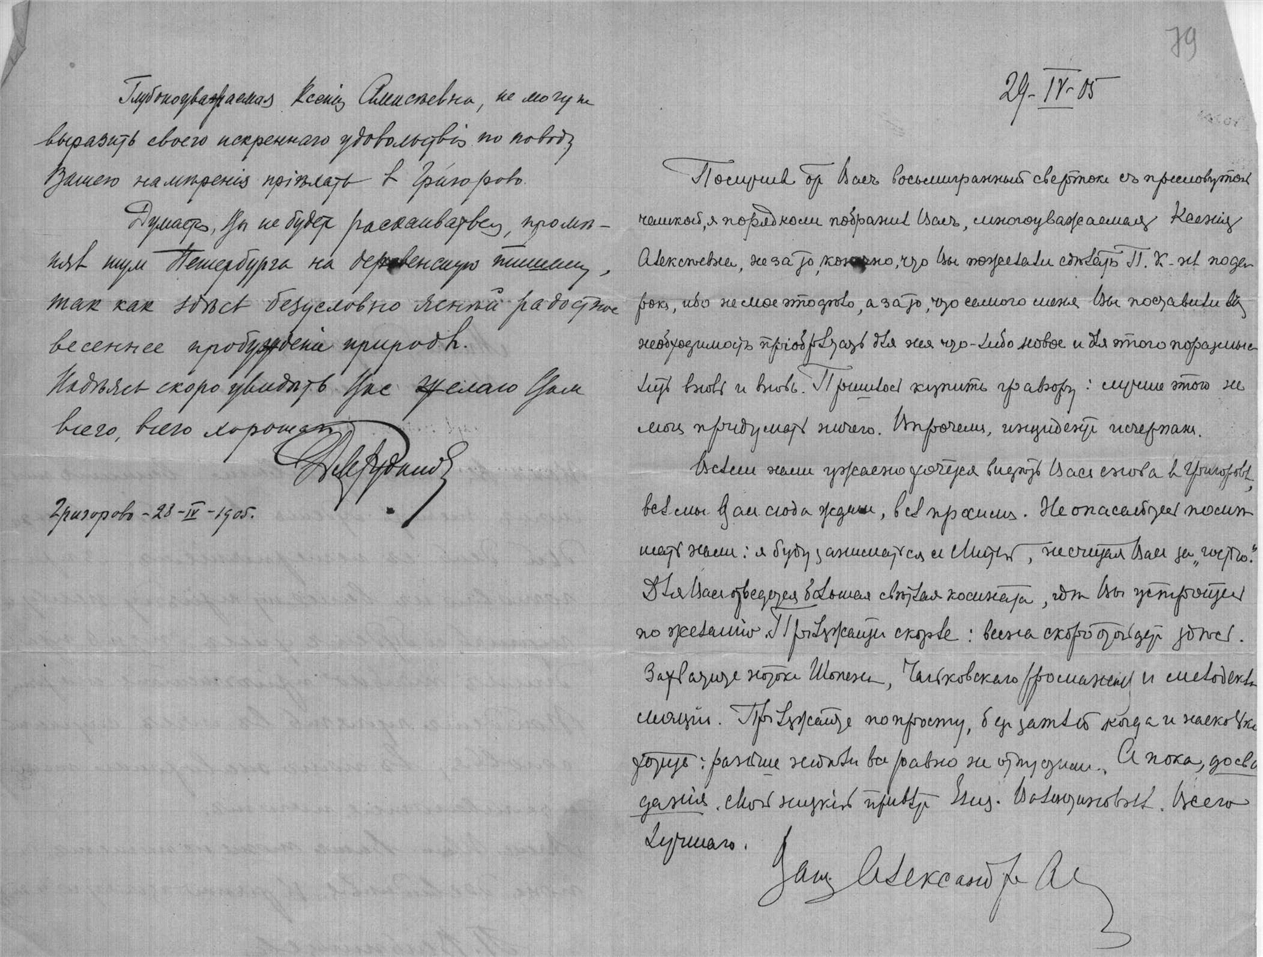 Глубокоуважаемая Ксенія Алексѣевна, не могу не
выразить своего искренняго удовольствія по поводу
Вашего намѣренія пріѣхать в Григорово.
Думаю, Вы не будете раскаиваться, промѣ-
нявъ шум Петербурга на деревенскую тишину,
так как здѣсь безусловно ясный радостное
весеннее пробужденіе природы.
Надѣясь скоро увидѣть Вас желаю Вам
всего, всего хорошаго
Григорово – 28 – IV – 1905.
79
29–IV–05
Получив от Васъ восьмигранный свертокъ съ пресловутой
чашкой, я порядком побранил Васъ, многоуважаемая Ксенія
Алексѣевна, не за то, конечно, что Вы пожелали сдѣлать П. К–нѣ пода-
рок, ибо не мое это дѣло, а за то, что самого меня Вы поставили въ
необходимость пріобрѣтать для нея что-либо новое и для этого поразмыс-
лить вновь и вновь. Пришлось купить гравюру: лучше этого не
мог придумать ничего. Впрочем, инцидентъ исчерпан.
Всѣм нам ужасно хочется видѣть Вас снова в Григоровѣ,
всѣ мы Вас сюда ждем, всѣ просим. Не опасайтесь помѣ-
шать нам: я буду заниматься и Митя, не считая Вас за „гостью".
Для Вас отведется большая свѣтлая комната, гдѣ Вы устроитесь
по желанію. Пріѣзжайте скорѣе: весна скоро отойдет здѣсь.
Захватите ноты Шопена, Чайковскаго (романсы) и мелодекла-
мацiи. Пріѣзжайте попросту, без затѣй когда и насколько
хотите: раньше мы все равно не отпустим. А пока, до сви-
данія. Мой низкій привѣт Елиз. Валентиновнѣ. Всего
лучшаго.
Ваш Александр